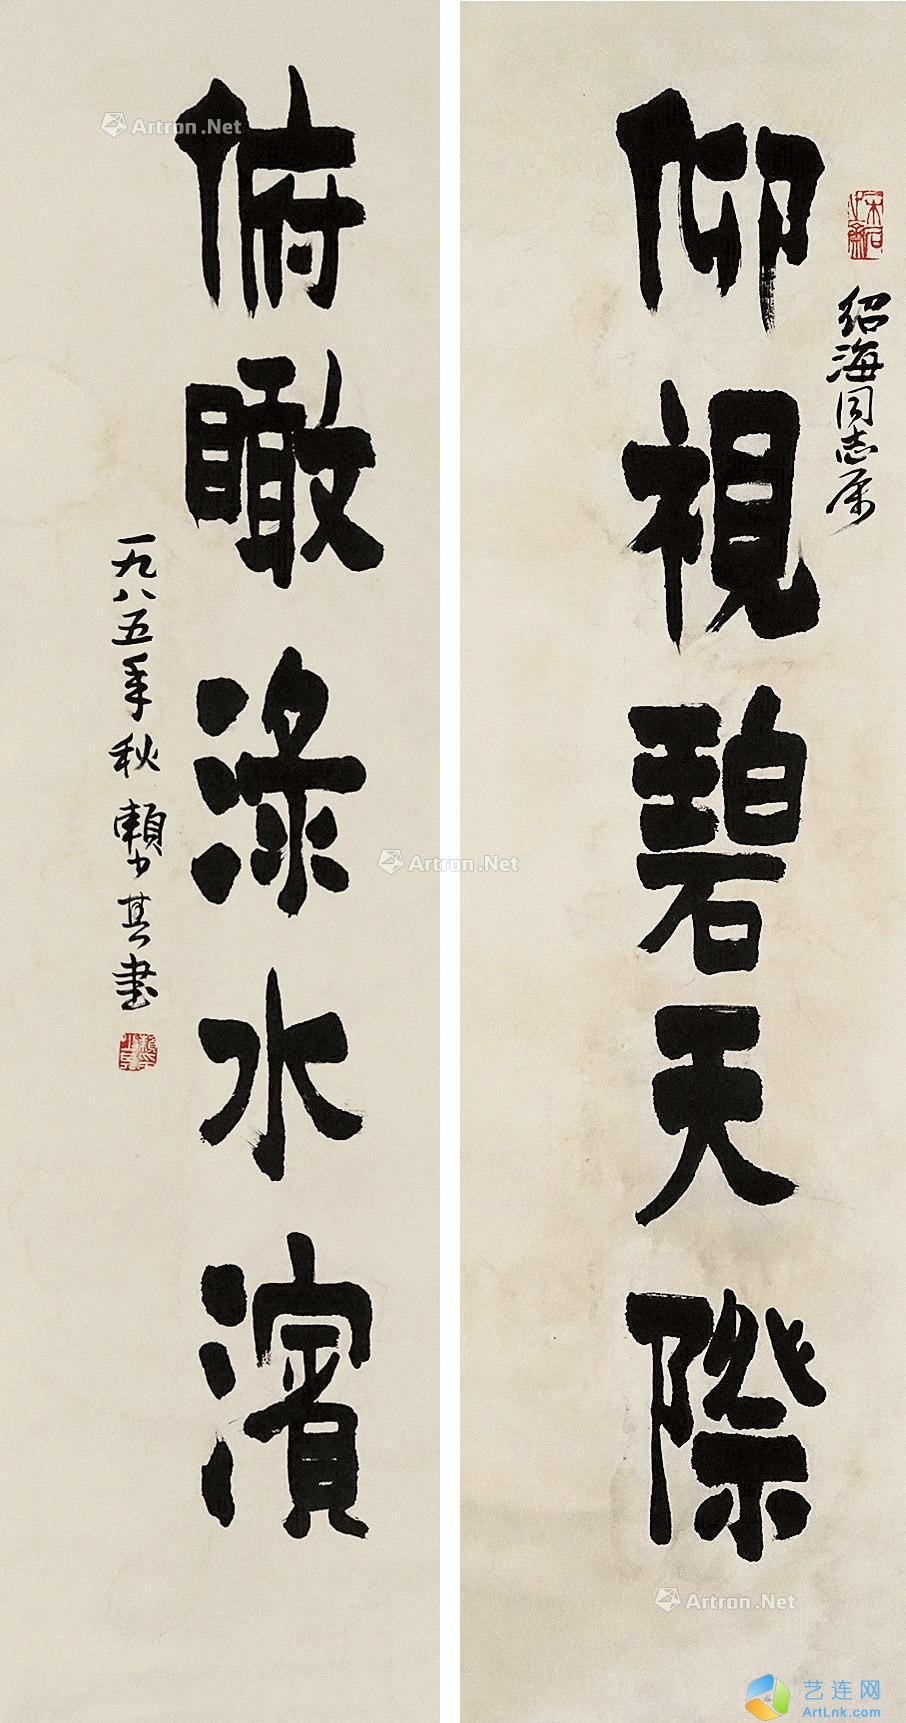 绍海同志属
仰視碧天際
俯瞰淥水濱
一九八五年秋 賴少其書
Artron.Net
Artron.Net
Artron.Net
艺连网
ArtLnk.com